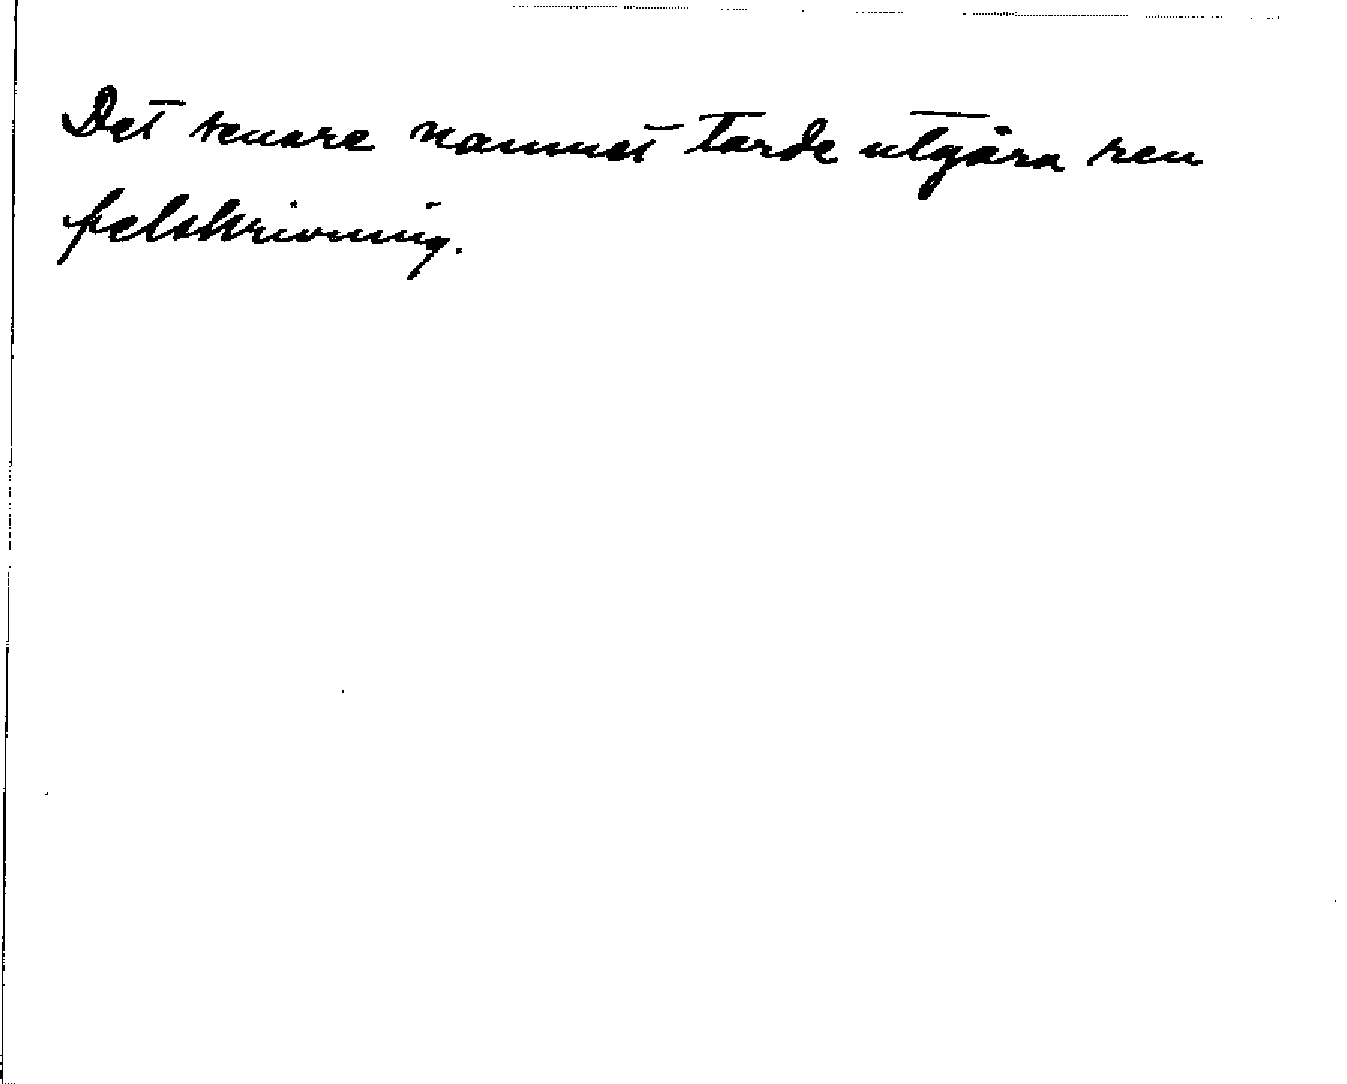 Det senare namnet torde utgöra ren
felskrivning.